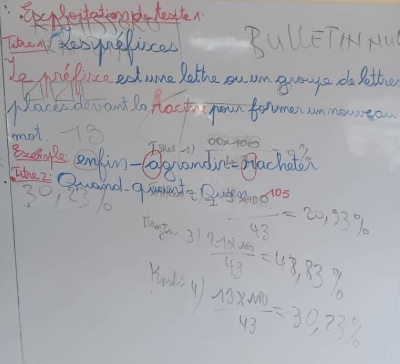 Exploitation de texte 1:
Titre 1: Les préfixes
BULLETIN NUL
Le préfixe est une lettre ou un groupe de lettres
placés devant la racine pour former un nouveau
mot.
13
Exemple: enfin - agrandir - racheter
Titre 2: Quand - quant - Qu'en
105
30,23%
43 = 20,93%
3) 21x100
43 = 48,83%
4) 13x100
43 = 30,23%